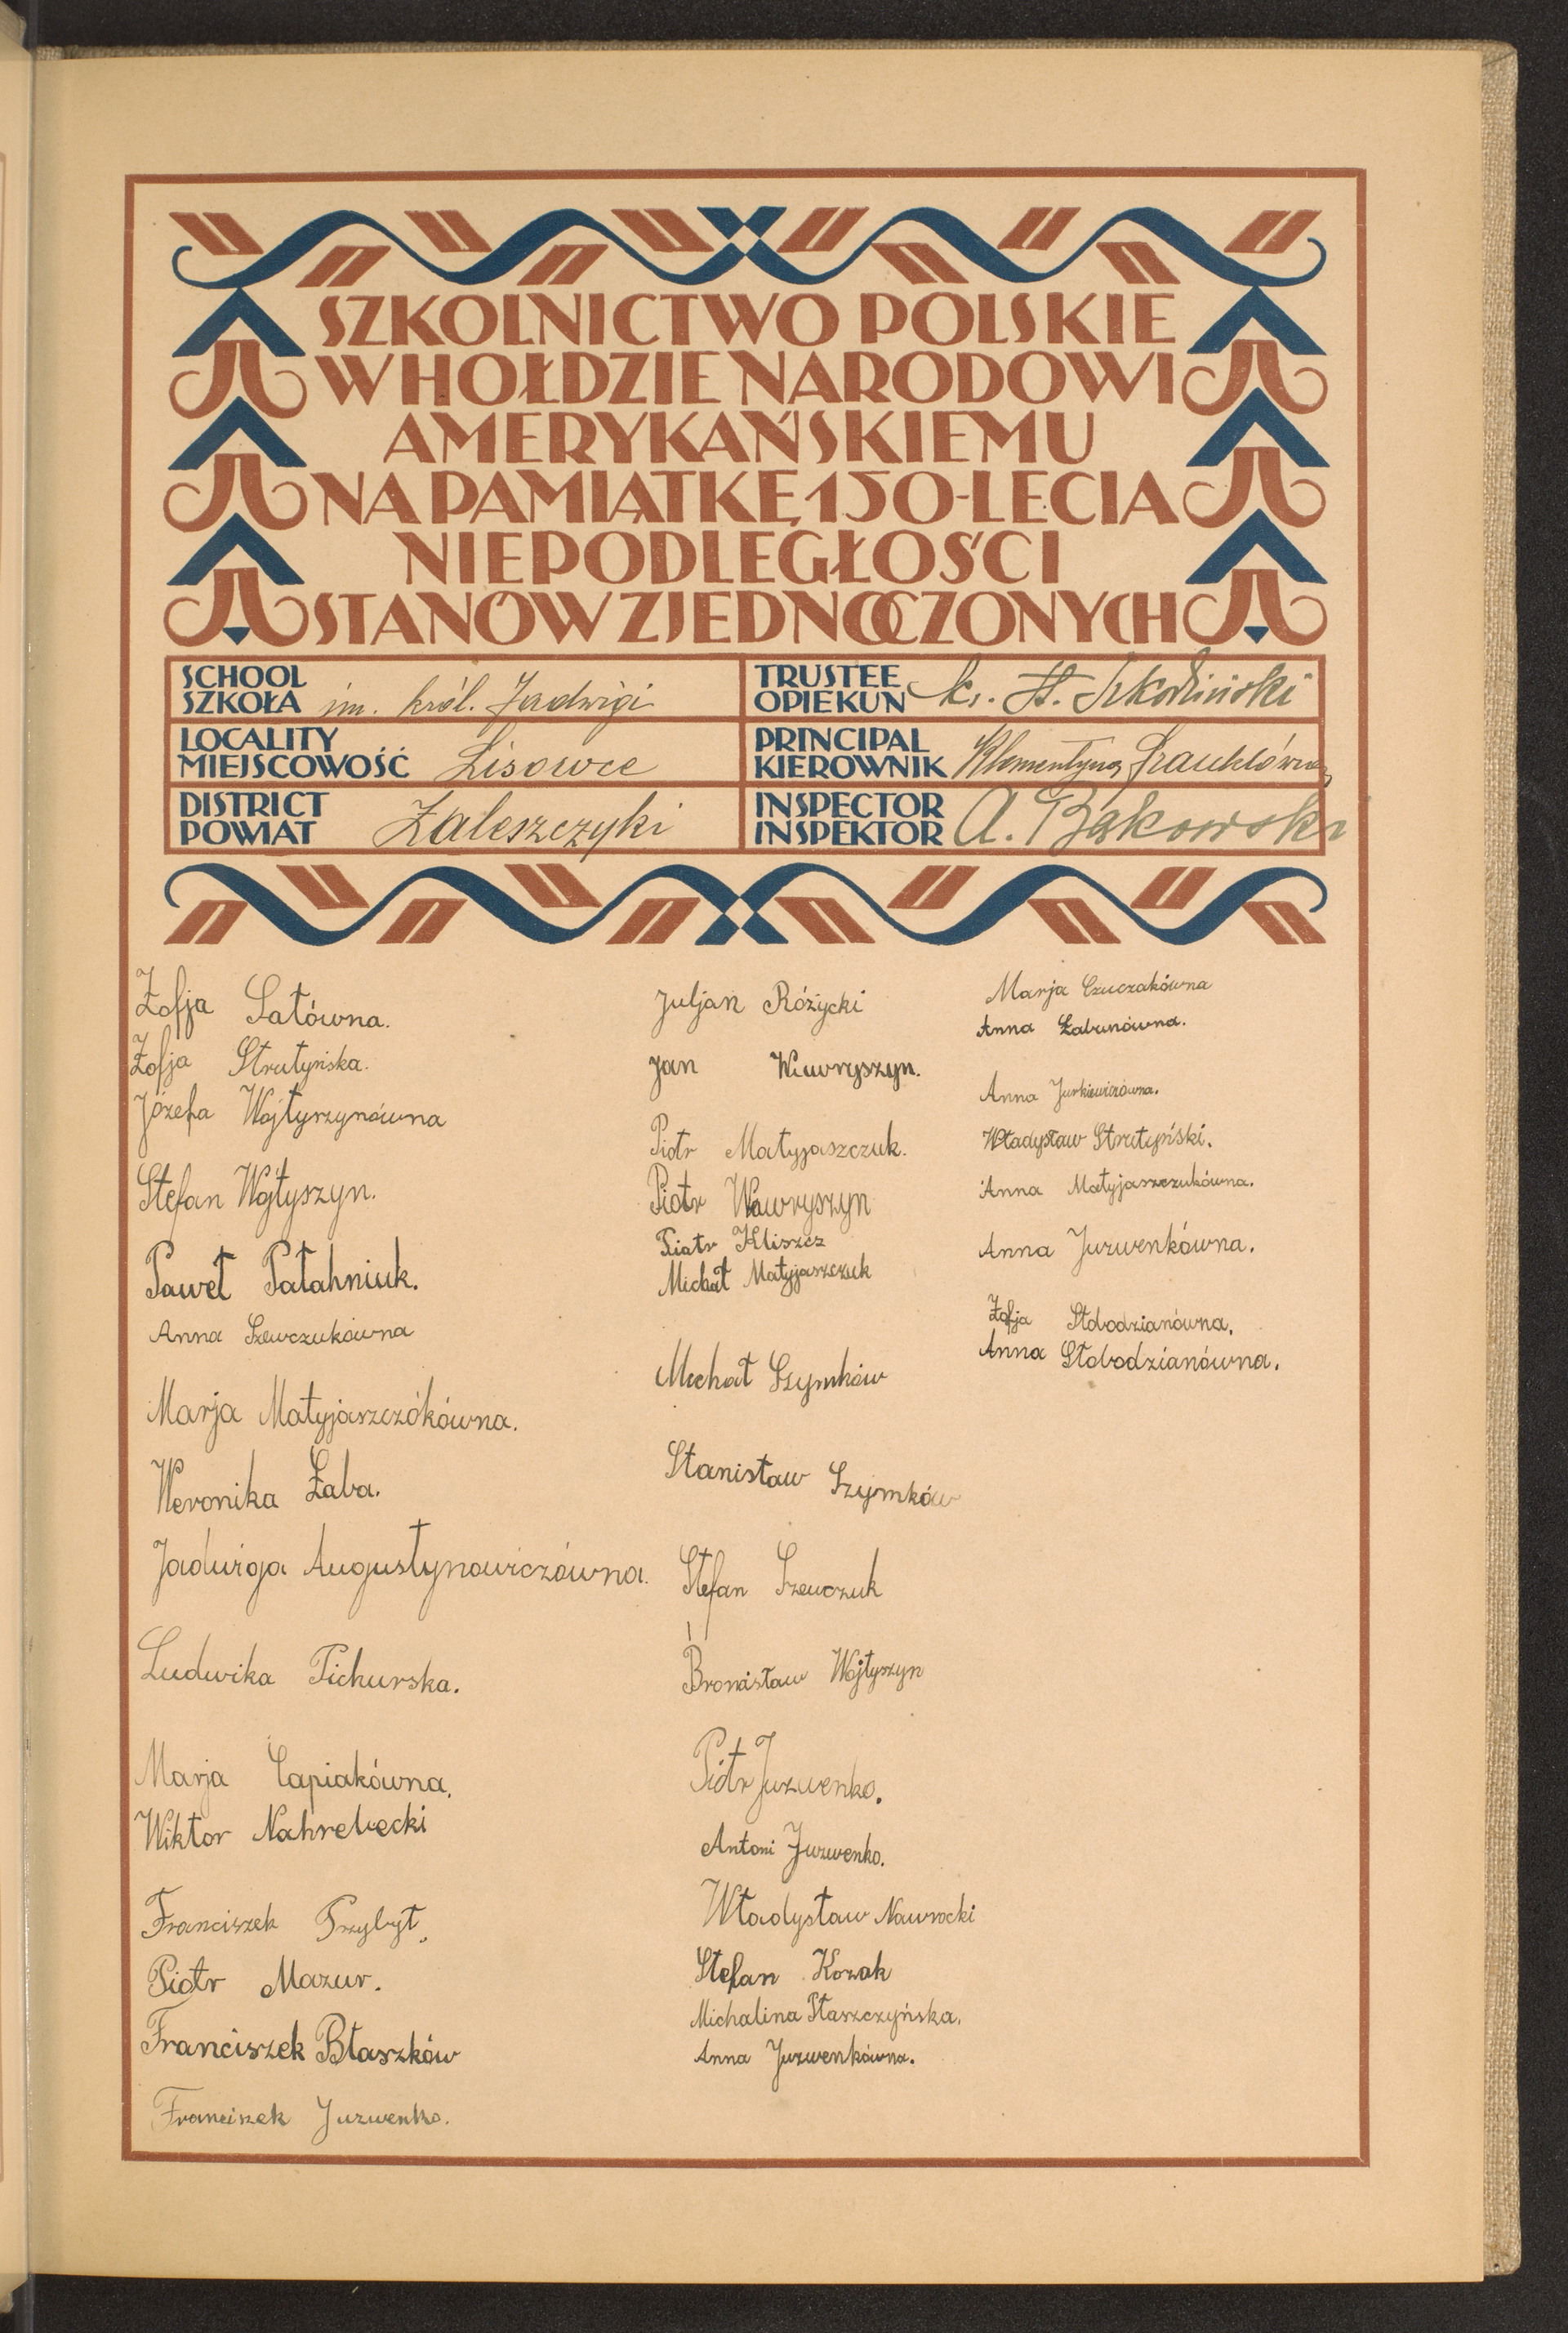 SZKOLNICTWO POLSKIE
W HOŁDZIE NARODOWI
AMERYKAŃSKIEMU
NA PAMIĄTKĘ 150-LECIA
NIEPODLEGŁOŚCI
STANÓW ZJEDNOCZONYCH
SCHOOL
SZKOŁA im. król. Jadwigi
LOCALITY
MIEJSCOWOŚĆ Lisowce
DISTRICT
POWIAT Zaleszczyki
TRUSTEE
OPIEKUN ks. St.
PRINCIPAL
KIEROWNIK Klementyna
INSPECTOR
INSPEKTOR A. Bąkowski
Zofja Satówna.
Zofja Strutyńska.
Józefa Wojtyszynówna
Stefan Wojtyszyn.
Paweł Pałahniuk.
Anna Szewczukówna
Marja Matyjaszczókówna.
Weronika Żaba.
Jadwiga Augustynowiczówna.
Ludwika Pichurska.
Marja Capiakówna.
Wiktor Nahrebecki
Franciszek Przybyt.
Piotr Mazur.
Franciszek Błaszków
Franciszek Juzwenko.
Juljan Różycki
Jan Wawryszyn.
Piotr Matyjaszczuk.
Piotr Wawryszyn
Piotr Kliszcz
Michał Matyjaszczuk
Michał Szymków
Stanisław Szymków
Stefan Szewczuk
Bronisław Wojtyszyn
Piotr Juzwenko.
Antoni Juzwenko.
Władysław Nawrocki
Stefan Kozak
Michalina Ptaszczyńska.
Anna Juzwenkówna.
Marja Czuczakówna
Anna Żabunówna.
Anna Jurkiewiczówna.
Władysław Strutyński.
Anna Matyjaszczukówna.
Anna Juzwenkówna.
Zofja Słobodzianówna.
Anna Słobodzianówna.